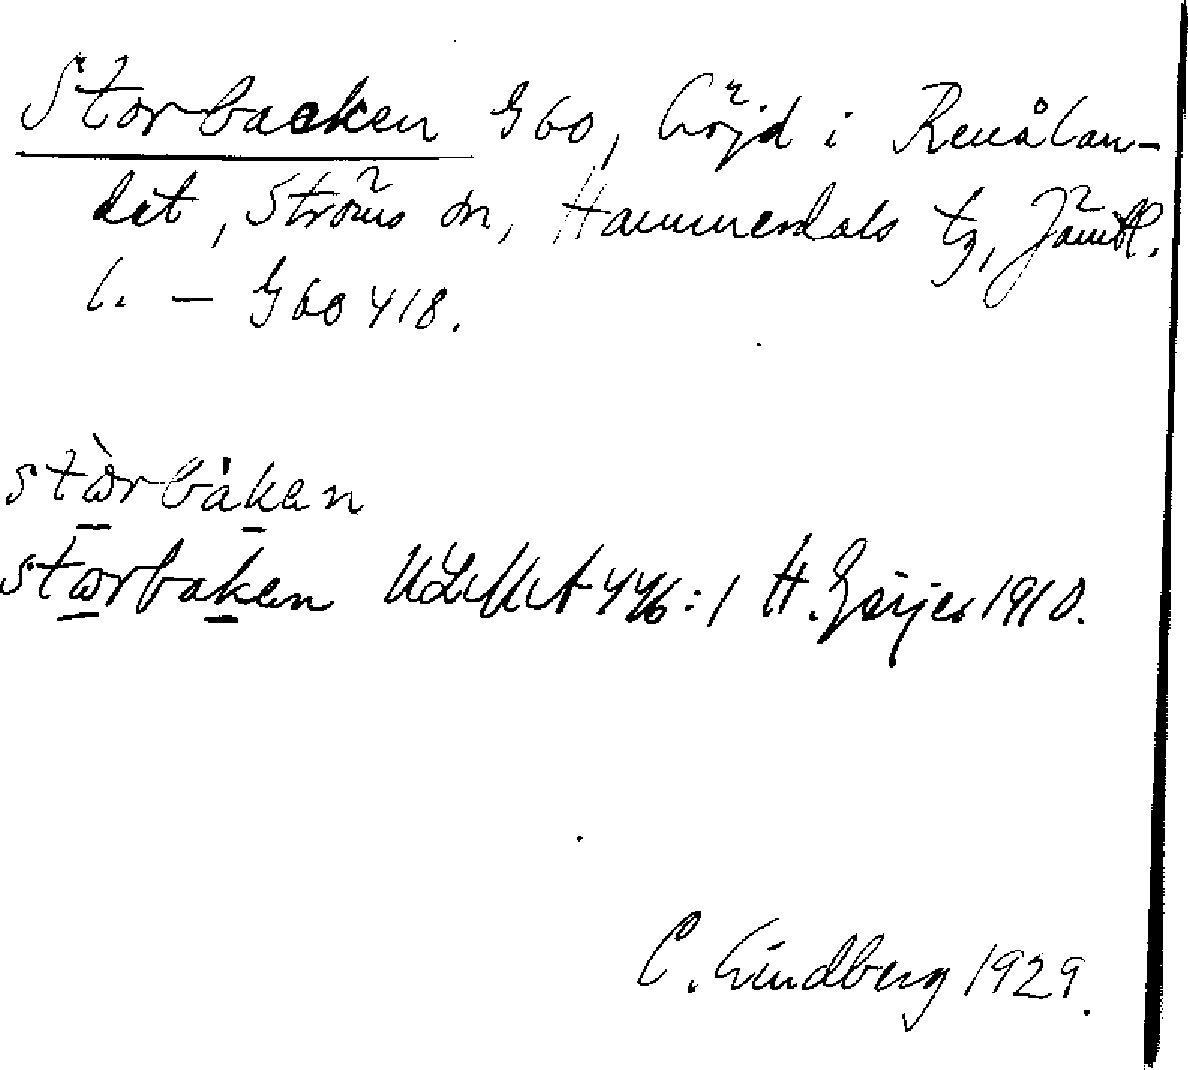 Storbacken G60, höjd i Renålan-
det, Ströms sn, Hammerdals tg, Jämtl.
l. — G60 418.
stòrbàken
storbaken ULMA 446:1 H. Geijer 1910.
C. Lindberg 1929.